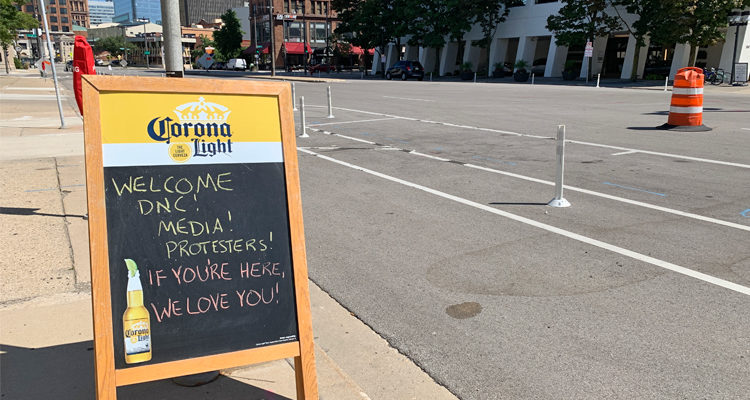 Corona
Light
WELCOME
DNC!
MEDIA!
PROTESTERS!
IF YOU'RE HERE,
WE LOVE YOU!
Corona
Light